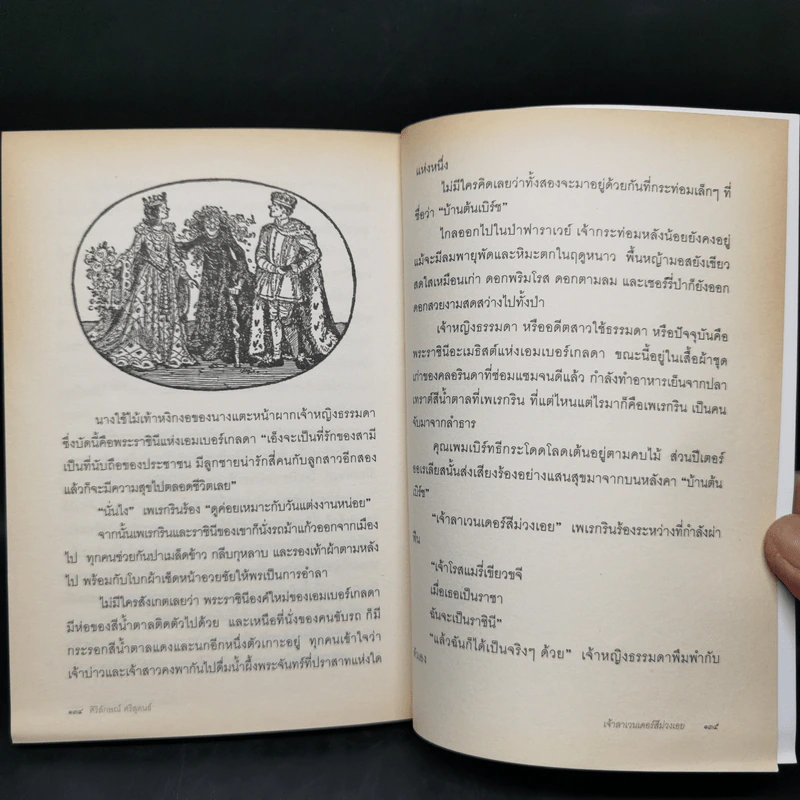 นางใช้ไม้เท้าหงิกงอของนางแตะหน้าผากเจ้าหญิงธรรมดา
ซึ่งบัดนี้คือพระราชินีแห่งเอมเบอร์เกลดา "เอ็งจะเป็นที่รักของสามี
เป็นที่นับถือของประชาชน มีลูกชายน่ารักสี่คนกับลูกสาวอีกสอง
แล้วก็จะมีความสุขไปตลอดชีวิตเลย"
"นั่นไง" เพเรกรินร้อง "ดูค่อยเหมาะกับวันแต่งงานหน่อย"
จากนั้นเพเรกรินและราชินีของเขาก็นั่งรถม้าแก้วออกจากเมือง
ไป ทุกคนช่วยกันปาเมล็ดข้าว กลีบกุหลาบ และรองเท้าผ้าตามหลัง
ไป พร้อมกับโบกผ้าเช็ดหน้าอวยชัยให้พรเป็นการอำลา
ไม่มีใครสังเกตเลยว่า พระราชินีองค์ใหม่ของเอมเบอร์เกลดา
มีห่อของสีน้ำตาลติดตัวไปด้วย และเหนือที่นั่งของคนขับรถ ก็มี
กระรอกสีน้ำตาลแดงและนกอีกหนึ่งตัวเกาะอยู่ ทุกคนเข้าใจว่า
เจ้าบ่าวและเจ้าสาวคงพากันไปดื่มน้ำผึ้งพระจันทร์ที่ปราสาทแห่งใด
๑๓๔ ศิริลักษณ์ ศรีสุคนธ์
แห่งหนึ่ง
ไม่มีใครคิดเลยว่าทั้งสองจะมาอยู่ด้วยกันที่กระท่อมเล็กๆ ที่
ชื่อว่า "บ้านต้นเบิร์ช"
ไกลออกไปในป่าฟาราเวย์ เจ้ากระท่อมหลังน้อยยังคงอยู่
แม้จะมีลมพายุพัดและหิมะตกในฤดูหนาว พื้นหญ้ามอสยังเขียว
สดใสเหมือนเก่า ดอกพริมโรส ดอกตามลม และเชอร์รี่ป่าก็ยังออก
ดอกสวยงามสดสว่างไปทั้งป่า
เจ้าหญิงธรรมดา หรืออดีตสาวใช้ธรรมดา หรือปัจจุบันคือ
พระราชินีอะเมธิสต์แห่งเอมเบอร์เกลดา ขณะนี้อยู่ในเสื้อผ้าชุด
เก่าของคลอรินดาที่ซ่อมแซมจนดีแล้ว กำลังทำอาหารเย็นจากปลา
เทราต์สีน้ำตาลที่เพเรกริน ที่แต่ไหนแต่ไรมาก็คือเพเรกริน เป็นคน
จับมาจากลำธาร
คุณเพมเบิร์ทธีกระโดดโลดเต้นอยู่ตามคบไม้ ส่วนปีเตอร์
ออเรเลียสนั้นส่งเสียงร้องอย่างแสนสุขมาจากบนหลังคา "บ้านต้น
เบิร์ช"
"เจ้าลาเวนเดอร์สีม่วงเอย" เพเรกรินร้องระหว่างที่กำลังผ่า
ฟืน
"เจ้าโรสแมรี่เขียวขจี
เมื่อเธอเป็นราชา
ฉันจะเป็นราชินี"
"แล้วฉันก็ได้เป็นจริงๆ ด้วย" เจ้าหญิงธรรมดาพึมพำกับ
ตัวเอง
เจ้าลาเวนเดอร์สีม่วงเอย ๑๓๕